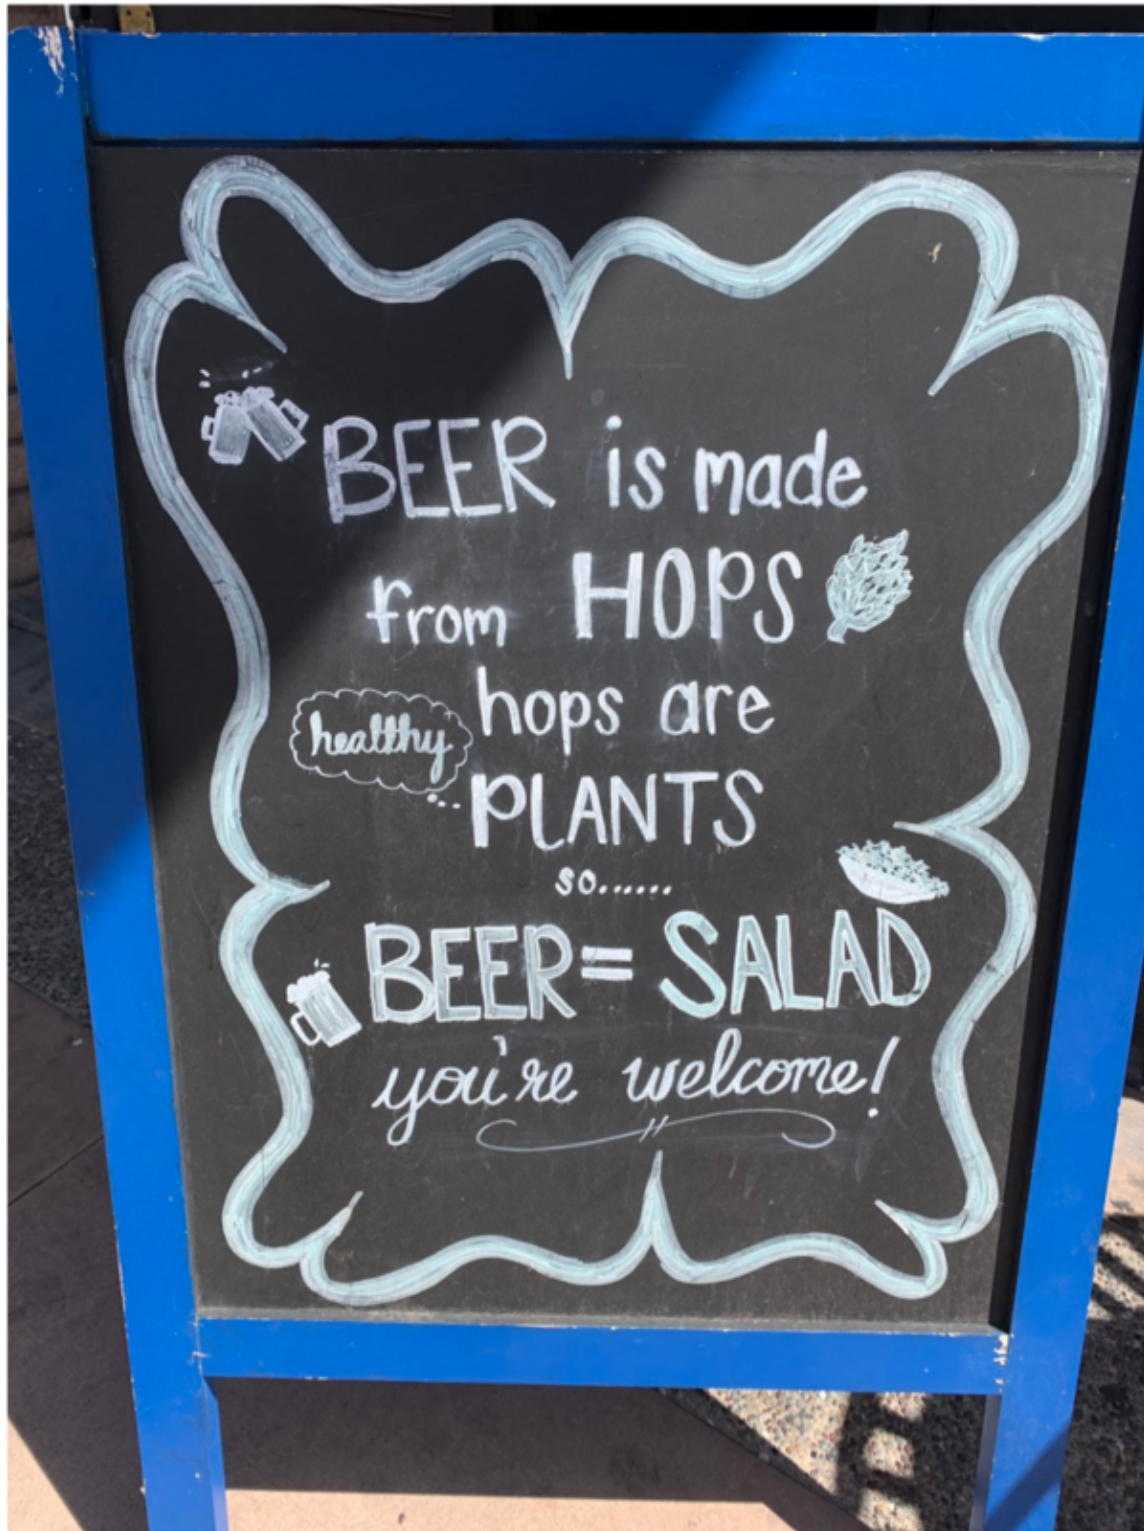 BEER is made
from HOPS
hops are
healthy
... PLANTS
so......
BEER = SALAD
you're welcome!